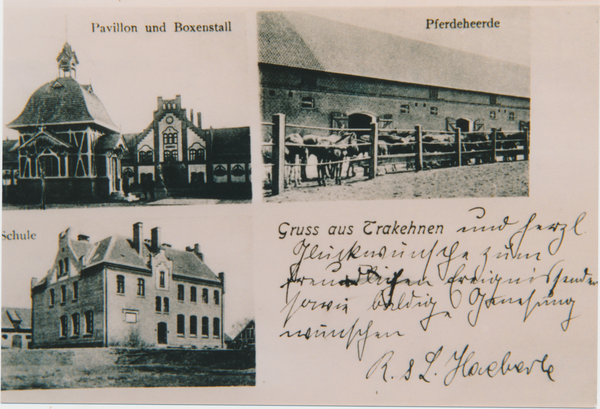 Pavillon und Boxenstall
Pferdeheerde
Schule
Gruss aus Trakehnen und herzl
Glückwünsche zum
freudlichen Ereignis senden
sowie baldige Genesung
wünschen
R. & L. Haeberle